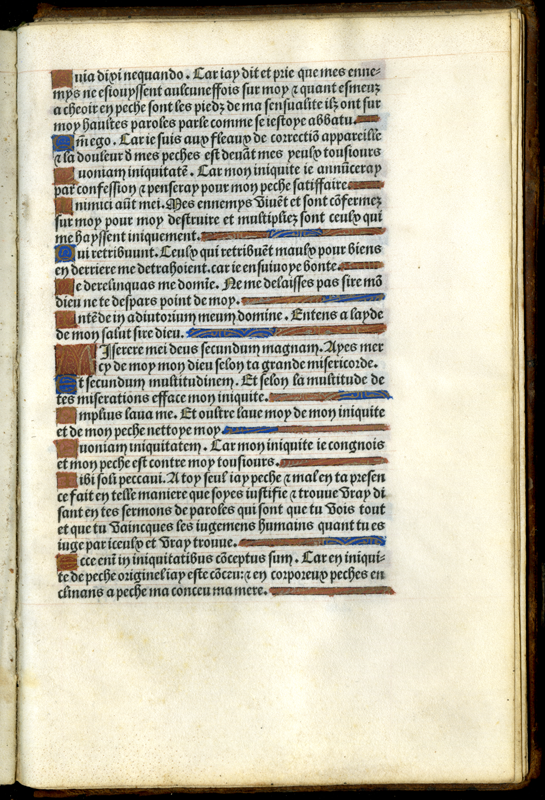 Quia dixi nequando. Car iay dit et prie que mes enne-
mys ne esiouyssent aulcuneffois sur moy ⁊ quant esmeuz
a cheoir en peche sont les piedz de ma sensualite ilz ont sur
moy haultes paroles parle comme se iestoye abbatu.
Qm̄ ego. Car ie suis aux fleaux de correctiō appareille
⁊ la douleur d̄ mes peches est deuāt mes yeulx tousiours
Quoniam iniquitatē. Car mon iniquite ie annūceray
par confession ⁊ penseray pour mon peche satiffaire.
Inimici aūt mei. Mes ennemys viuēt et sont cōfermez
sur moy pour moy destruire et multipliez sont ceulx qui
me hayssent iniquement.
Qui retribuunt. Ceulx qui retribuēt maulx pour biens
en derriere me detrahoient. car ie ensuiuoye bonte.
Ne derelinquas me domīe. Ne me delaisses pas sire mō
dieu ne te despars point de moy.
Intēde in adiutorium meum domine. Entens a layde
de mon salut sire dieu.
MIserere mei deus secundum magnam. Ayes mer
cy de moy mon dieu selon ta grande misericorde.
Et secundum multitudinem. Et selon la multitude de
tes miserations efface mon iniquite.
Amplius laua me. Et oultre laue moy de mon iniquite
et de mon peche nettoye moy.
Quoniam iniquitatem. Car mon iniquite ie congnois
et mon peche est contre moy tousiours.
Tibi soli peccaui. A toy seul iay peche ⁊ mal en ta presen
ce fait en telle maniere que soyes iustifie ⁊ trouue vray di
sant en tes sermons de paroles qui sont que tu vois tout
et que tu vaincques les iugemens humains quant tu es
iuge par iceulx et vray trouue.
Ecce eni in iniquitatibus cōceptus sum. Car en iniqui-
te de peche originel iay este cōceu: ⁊ en corporeux peches en
clinans a peche ma conceu ma mere.